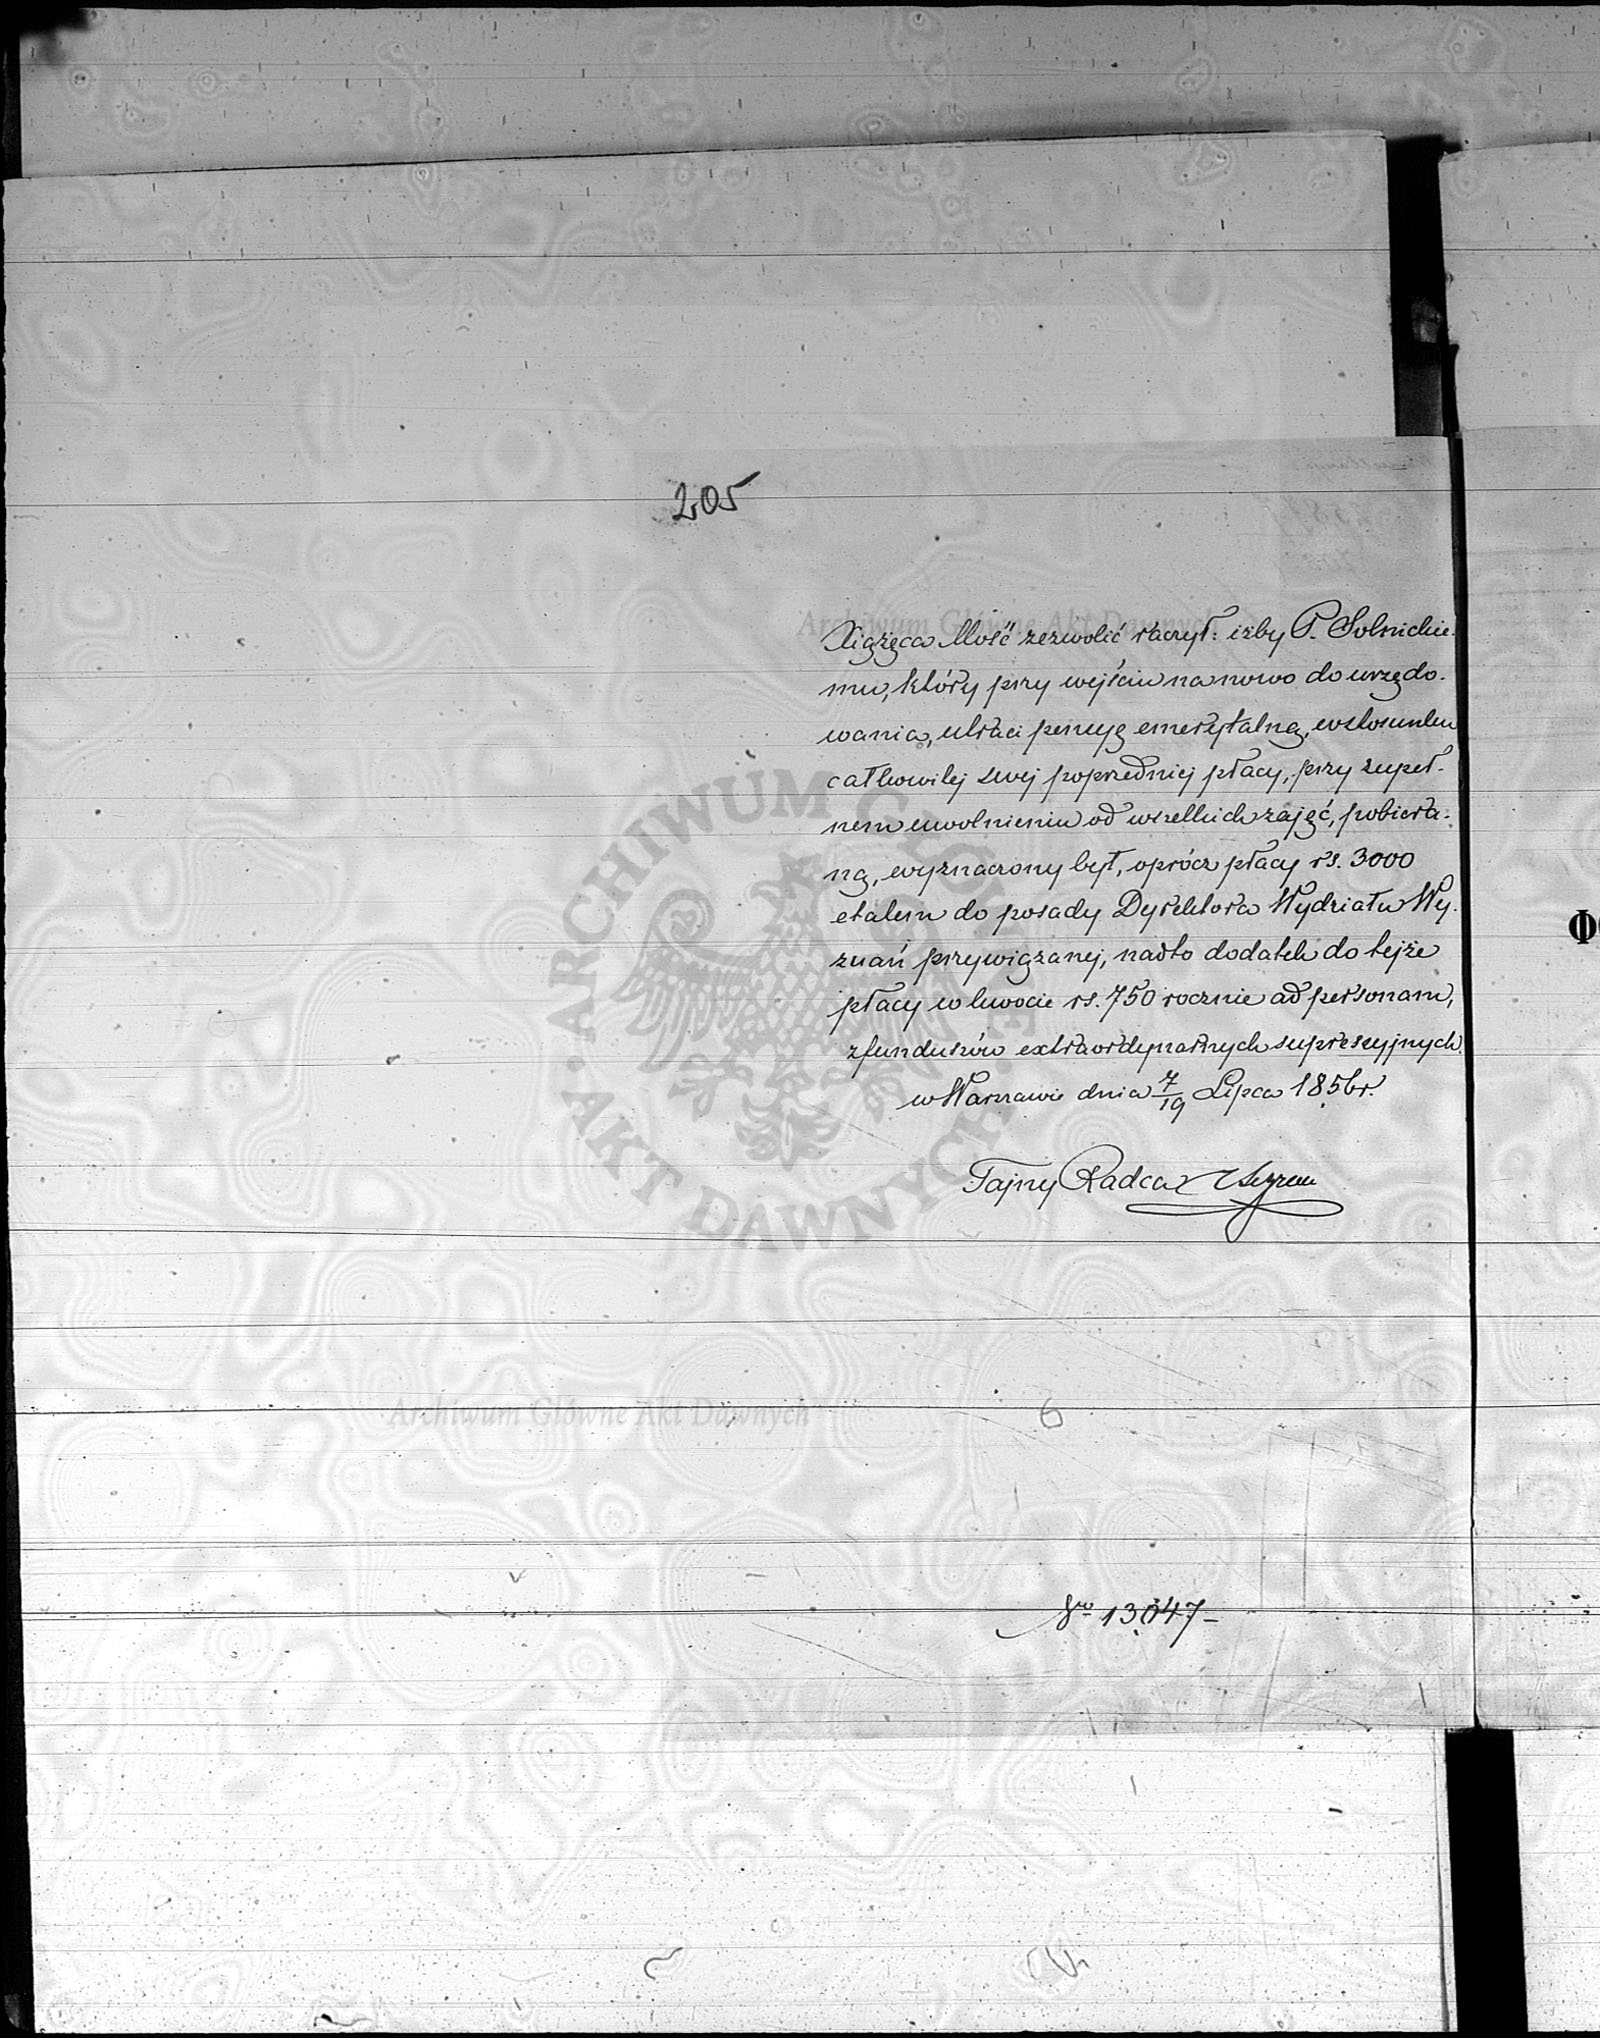 205
Xiążęca Mość zezwolić raczył: iżby P. Solnickie-
mu, który przy wejściu na nowo do urzędo-
wania, utraci pensyą emerytalną, w stosunku
całkowitej swej poprzedniej płacy, przy zupeł-
nem uwolnieniu od wszelkich zajęć, pobiera-
ną, wyznaczony był, oprócz płacy rs. 3000
etatem do posady Dyrektora Wydziału Wy-
znań przywiązanej, nadto dodatek do tejże
płacy w kwocie rs. 750 rocznie ad personam,
z funduszów extraordynarnych supresyjnych.
w Warszawie dnia 7/19 Lipca 1856 r.
Tajny Radca
6
13047
ARCHIWUM GŁÓWNE AKT DAWNYCH
Archiwum Główne Akt Dawnych
Archiwum Główne Akt Dawnych